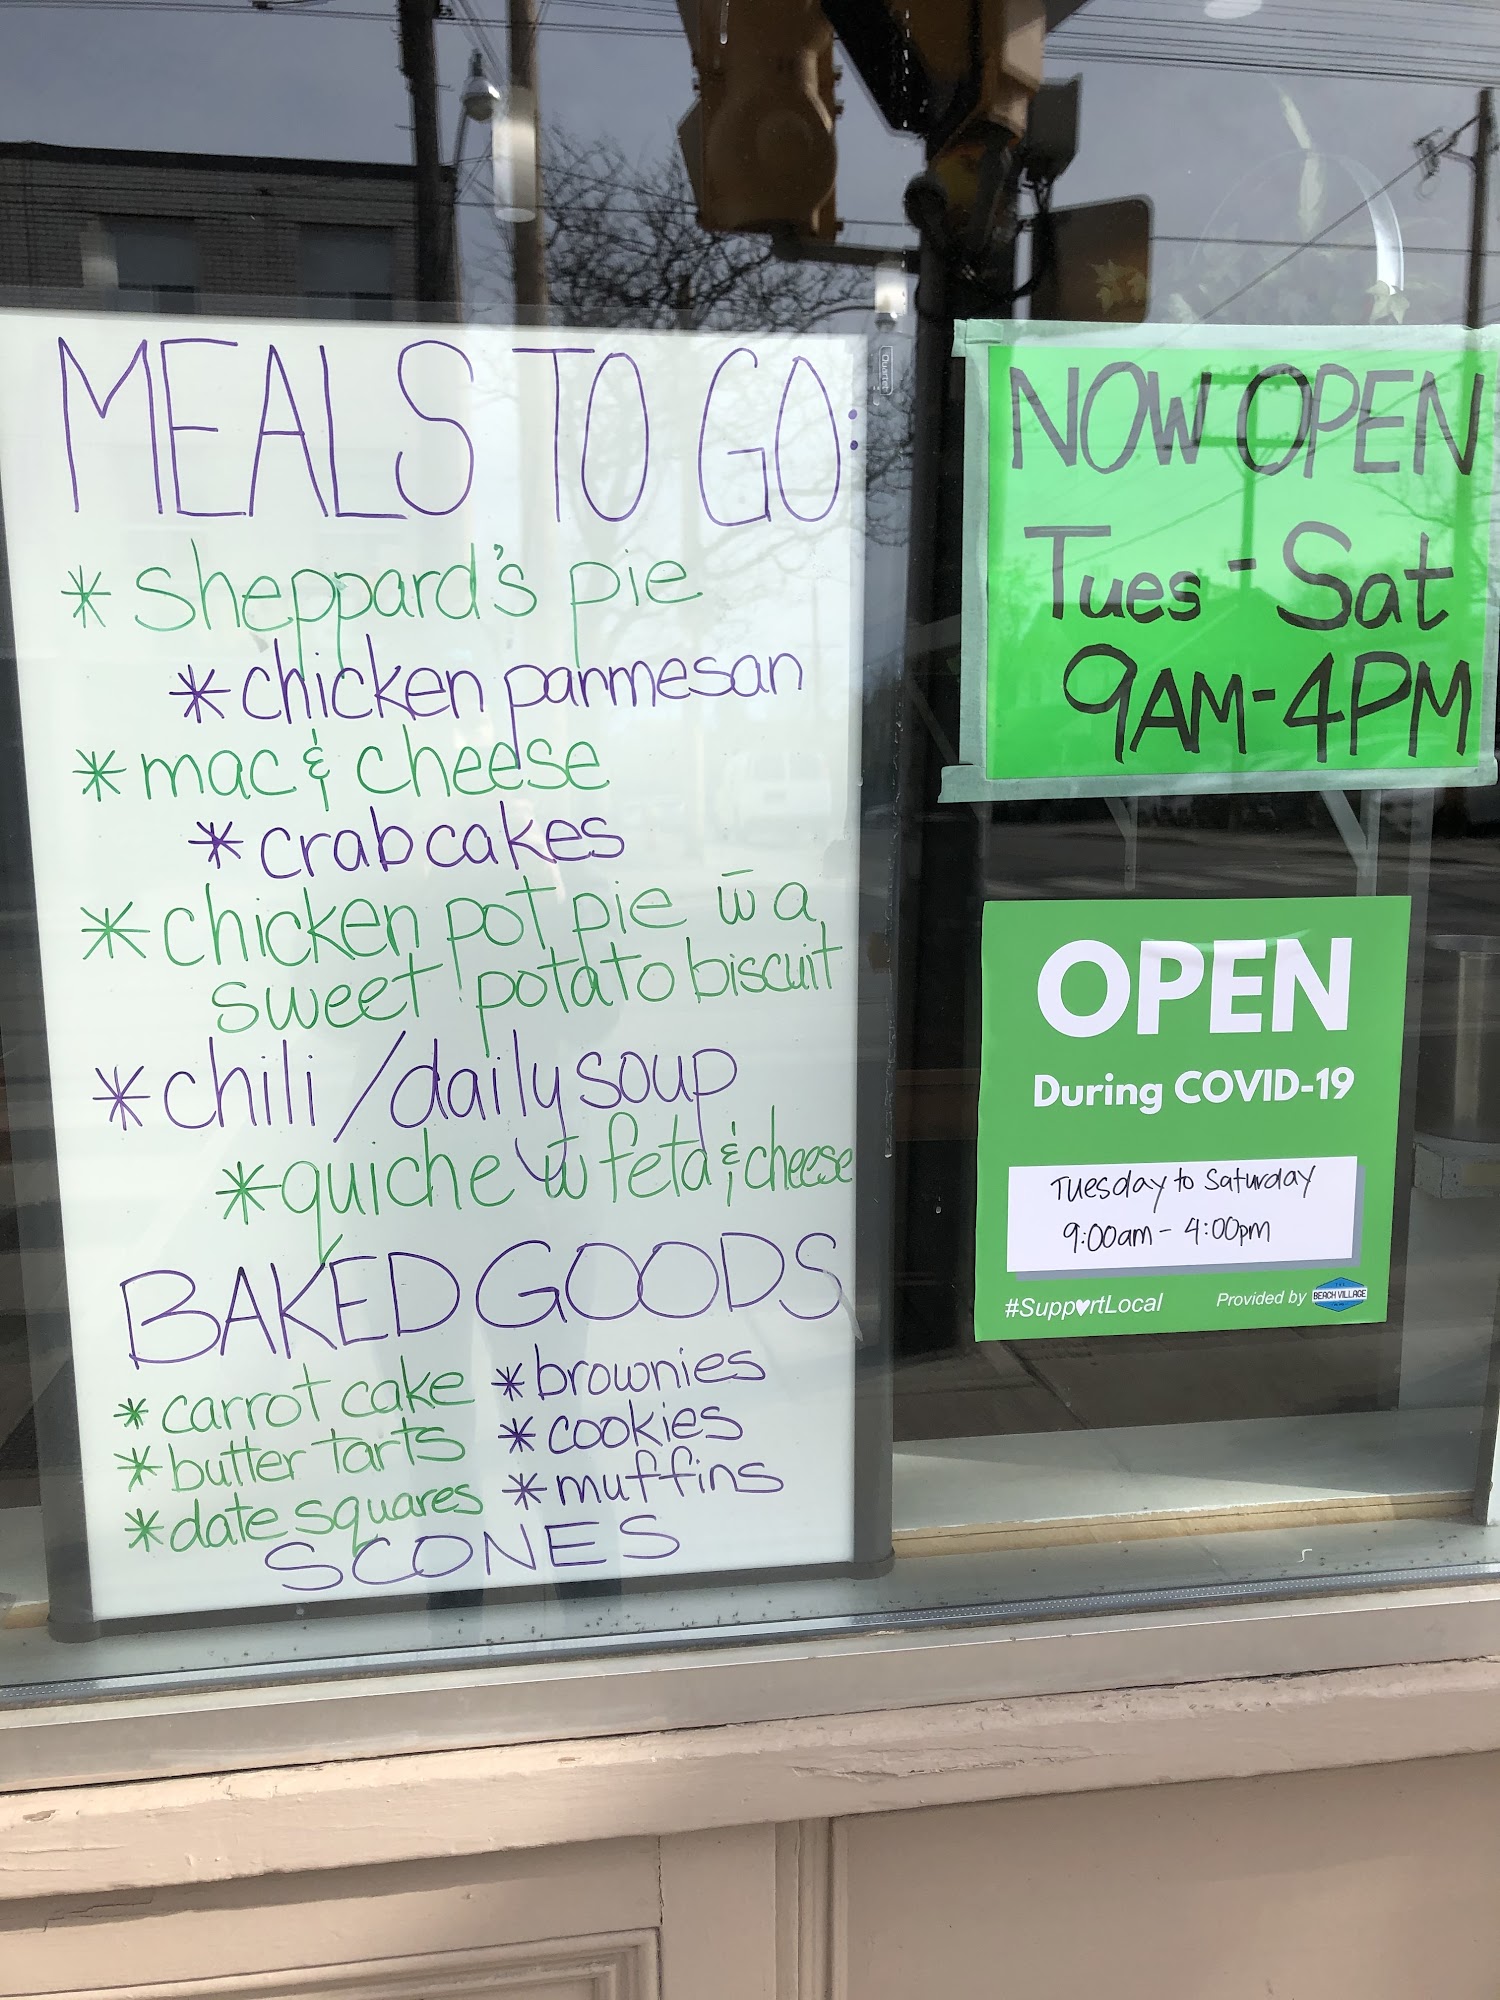 MEALS TO GO:
* Sheppard's pie
* chicken parmesan
* mac & cheese
* crabcakes
* chicken pot pie w̄ a
sweet potato biscuit
* chili / daily soup
* quiche w̄ feta & cheese
BAKED GOODS
* carrot cake
* butter tarts
* date squares
* brownies
* cookies
* muffins
SCONES
Quartet
NOW OPEN
Tues - Sat
9AM-4PM
OPEN
During COVID-19
Tuesday to Saturday
9:00am - 4:00pm
#Supp♥rtLocal
Provided by
BEACH VILLAGE